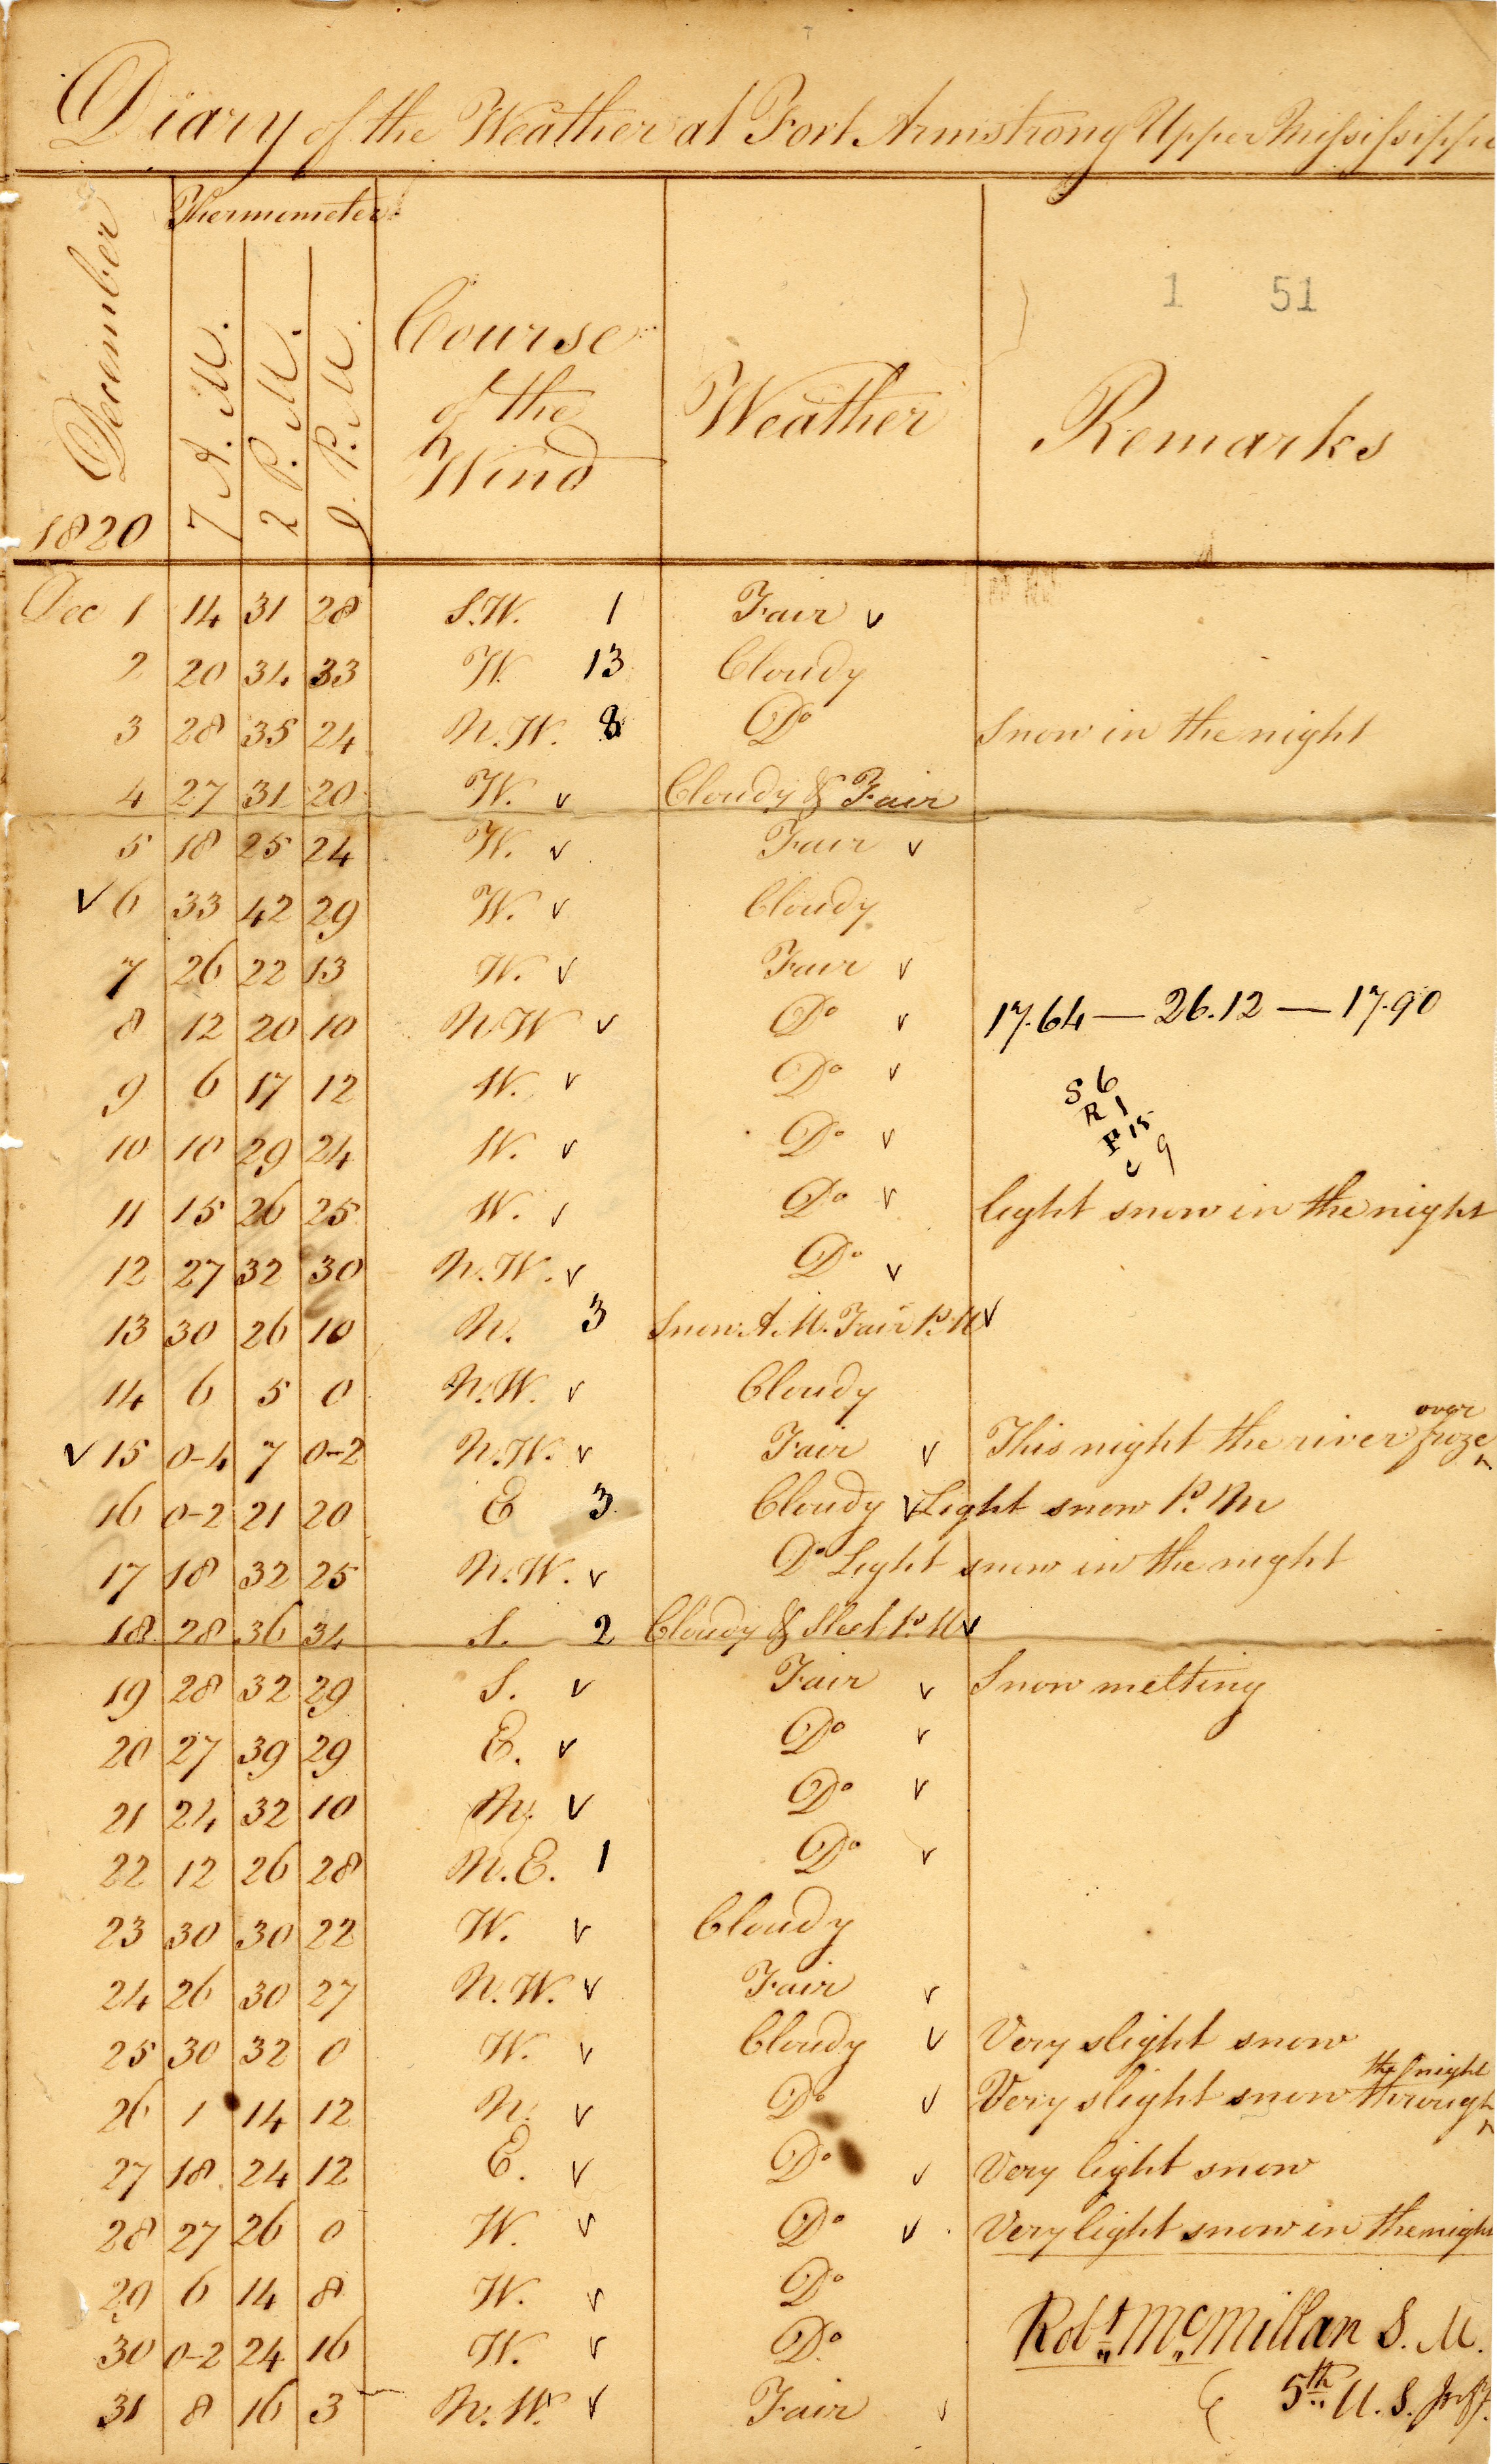 Diary of the Weather at Fort Armstrong Upper Mississippi
December
1820
Thermometer
7 A. M.
2 P. M.
9 P. M.
Course
of the
Wind
Weather
1 51
Remarks
Dec 1 14 31 28 S.W. 1 Fair v
2 20 34 33 W. 13 Cloudy
3 28 35 24 N.W. 8 Do Snow in the night
4 27 31 20 W. v Cloudy & Fair
5 18 25 24 W. v Fair v
v 6 33 42 29 W. v Cloudy
7 26 22 13 W. v Fair v
8 12 20 10 N.W v Do v 17.64 — 26.12 — 17.90
9 6 17 12 W. v Do v
S 6
R 1
F 15
c 9
10 10 29 24 W. v Do v
11 15 26 25 W. v Do v light snow in the night
12 27 32 30 N.W. v Do v
13 30 26 10 N. 3 Snow A.M. Fair P.M v
14 6 5 0 N.W. v Cloudy
v 15 0-4 7 0-2 N.W. v Fair v This night the river froze over
16 0-2 21 20 E 3 Cloudy v Light snow P. M
17 18 32 25 N.W. v Do Light snow in the night
18 28 36 34 S. 2 Cloudy & Sleet P. M v
19 28 32 29 S. v Fair v Snow melting
20 27 39 29 E. v Do v
21 24 32 10 N. v Do v
22 12 26 28 N.E. 1 Do v
23 30 30 22 W. v Cloudy
24 26 30 27 N.W. v Fair v
25 30 32 0 W. v Cloudy v Very slight snow
26 1 14 12 N. v Do v Very slight snow through the night
27 18 24 12 E. v Do v Very light snow
28 27 26 0 W. v Do v Very light snow in the night
29 6 14 8 W. v Do
30 0-2 24 16 W. v Do
Robt McMillan S. M.
31 8 16 3 N.W. v Fair v
5th U. S. Infy.